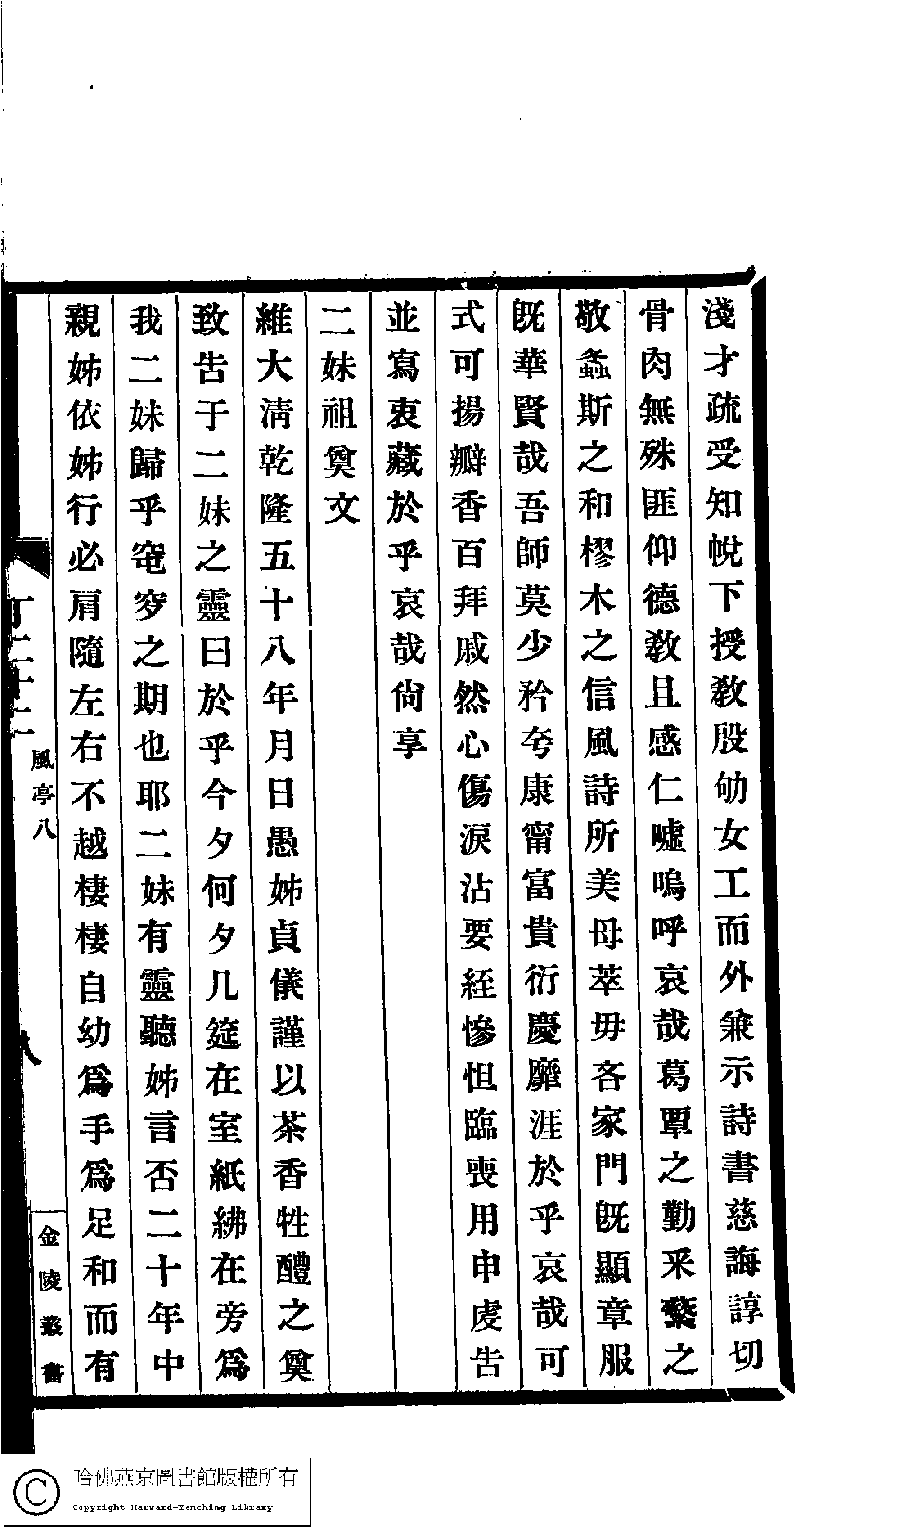 淺才疏受知帨下授敎殷劬女工而外兼示詩書慈誨諄切
骨肉無殊匪仰德敎且感仁噓嗚呼哀哉葛覃之勤采蘩之
敬螽斯之和樛木之信風詩所美母萃毋吝家門旣顯章服
旣華賢哉吾師莫少矜夸康甯富貴衍慶靡涯於乎哀哉可
式可揚瓣香百拜戚然心傷淚沾要絰慘怛臨喪用申虔告
並寫衷藏於乎哀哉尙享
二妹祖奠文
維大淸乾隆五十八年月日愚姊貞儀謹以茶香牲醴之奠
致告于二妹之靈曰於乎今夕何夕几筵在室紙紼在旁爲
我二妹歸乎窀穸之期也耶二妹有靈聽姊言否二十年中
親姊依姊行必肩隨左右不越棲棲自幼爲手爲足和而有
風亭八
八
金陵叢書
哈佛燕京圖書館版權所有
Copyright Harvard-Yenching Library